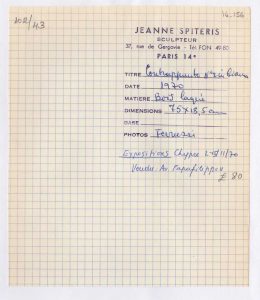 102/43
14.156
JEANNE SPITERIS
SCULPTEUR
37, rue de Gergovie - Tél. FON 49-80
PARIS 14e
TITRE Contrappunto N°
DATE 1970
MATIERE Bois laqué
DIMENSIONS 75x18,5cm
BASE
PHOTOS Ferruzzi
Expositions Chypre 2-15/11/70
Vendu Av. Papafilippou
£ 80